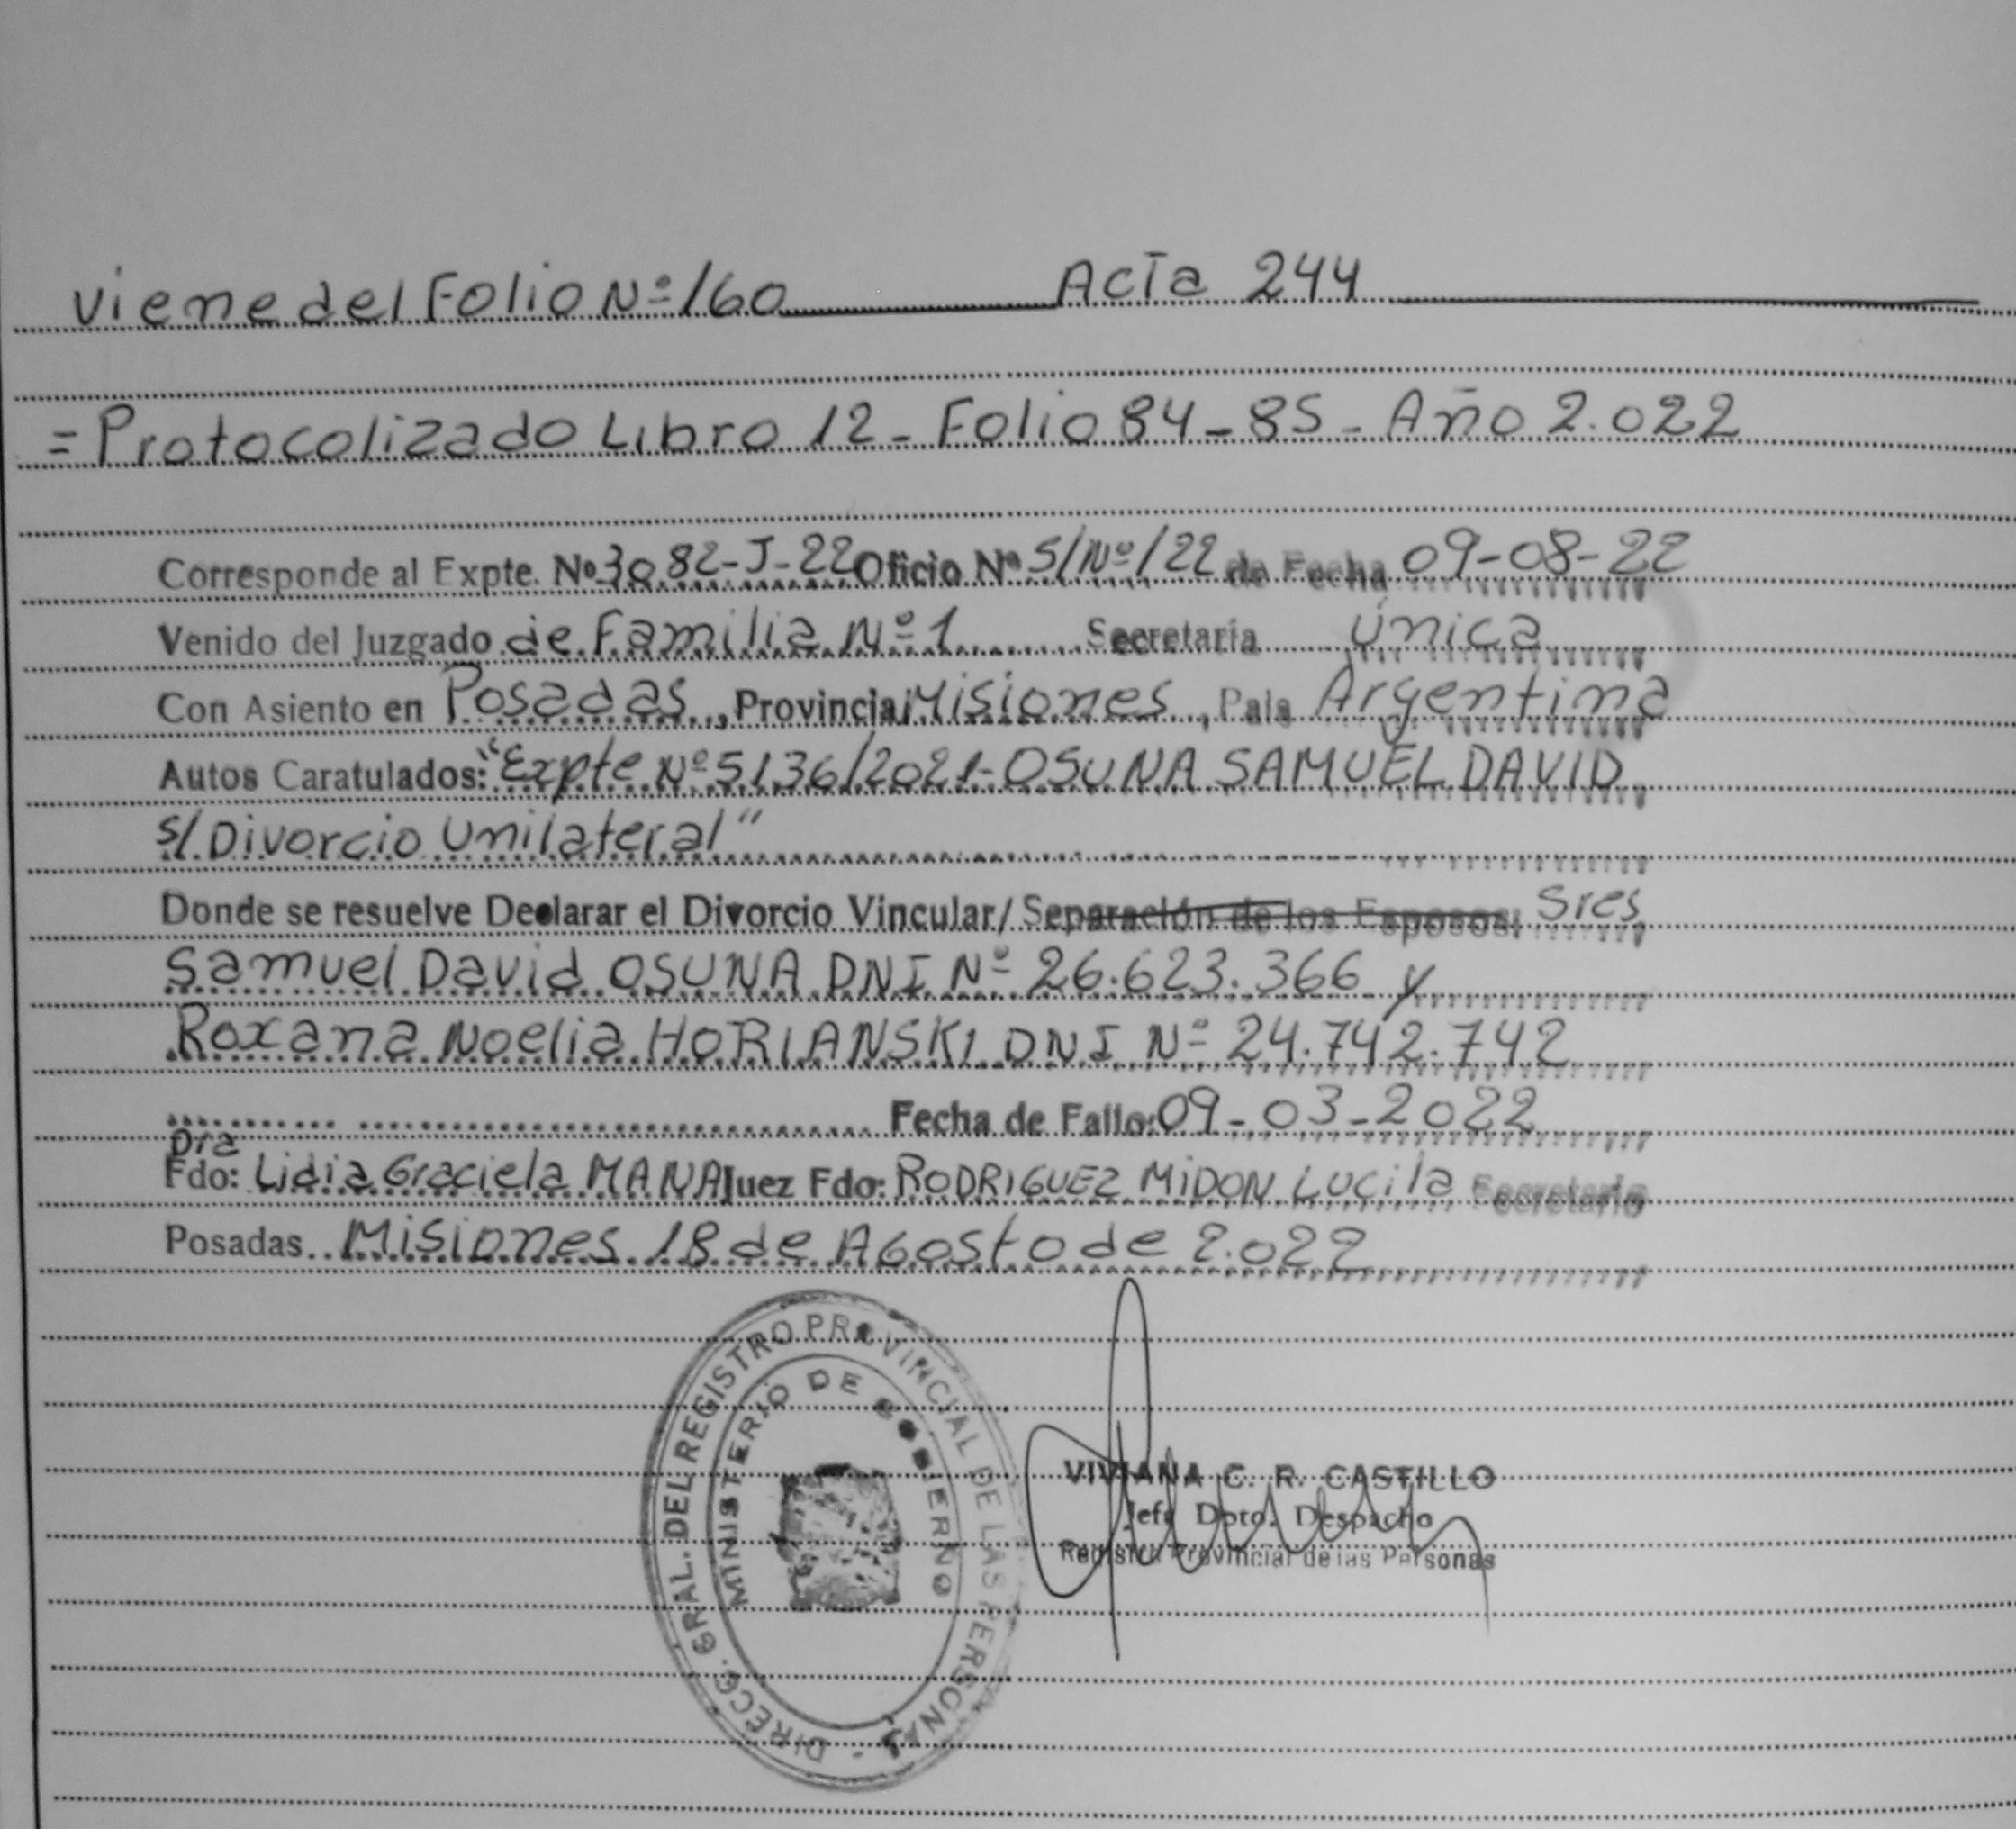 Viene del Folio Nº 160 Acta 244
= Protocolizado Libro 12 - Folio 84-85 - Año 2.022
Corresponde al Expte. Nº 3082-J-22 Oficio Nº S/Nº/22 de Fecha 09-08-22
Venido del Juzgado de Familia Nº 1 Secretaría Única
Con Asiento en Posadas, Provincia Misiones, País Argentina
Autos Caratulados: "Expte Nº 5136/2021-OSUNA SAMUEL DAVID
s/ Divorcio Unilateral"
Donde se resuelve Declarar el Divorcio Vincular/ Separación de los Esposos: Sres
Samuel David OSUNA DNI Nº 26.623.366 y
Roxana Noelia HORIANSKI DNI Nº 24.742.742
Fecha de Fallo: 09-03-2022
Dra
Fdo: Lidia Graciela MANA Juez Fdo: RODRIGUEZ MIDON Lucila Secretario
Posadas Misiones 18 de Agosto de 2.022
DIRECC. GRAL. DEL REGISTRO PROVINCIAL DE LAS PERSONAS -
MINISTERIO DE GOBIERNO
VIVIANA C. R. CASTILLO
Jefe Dpto. Despacho
Registro Provincial de las Personas